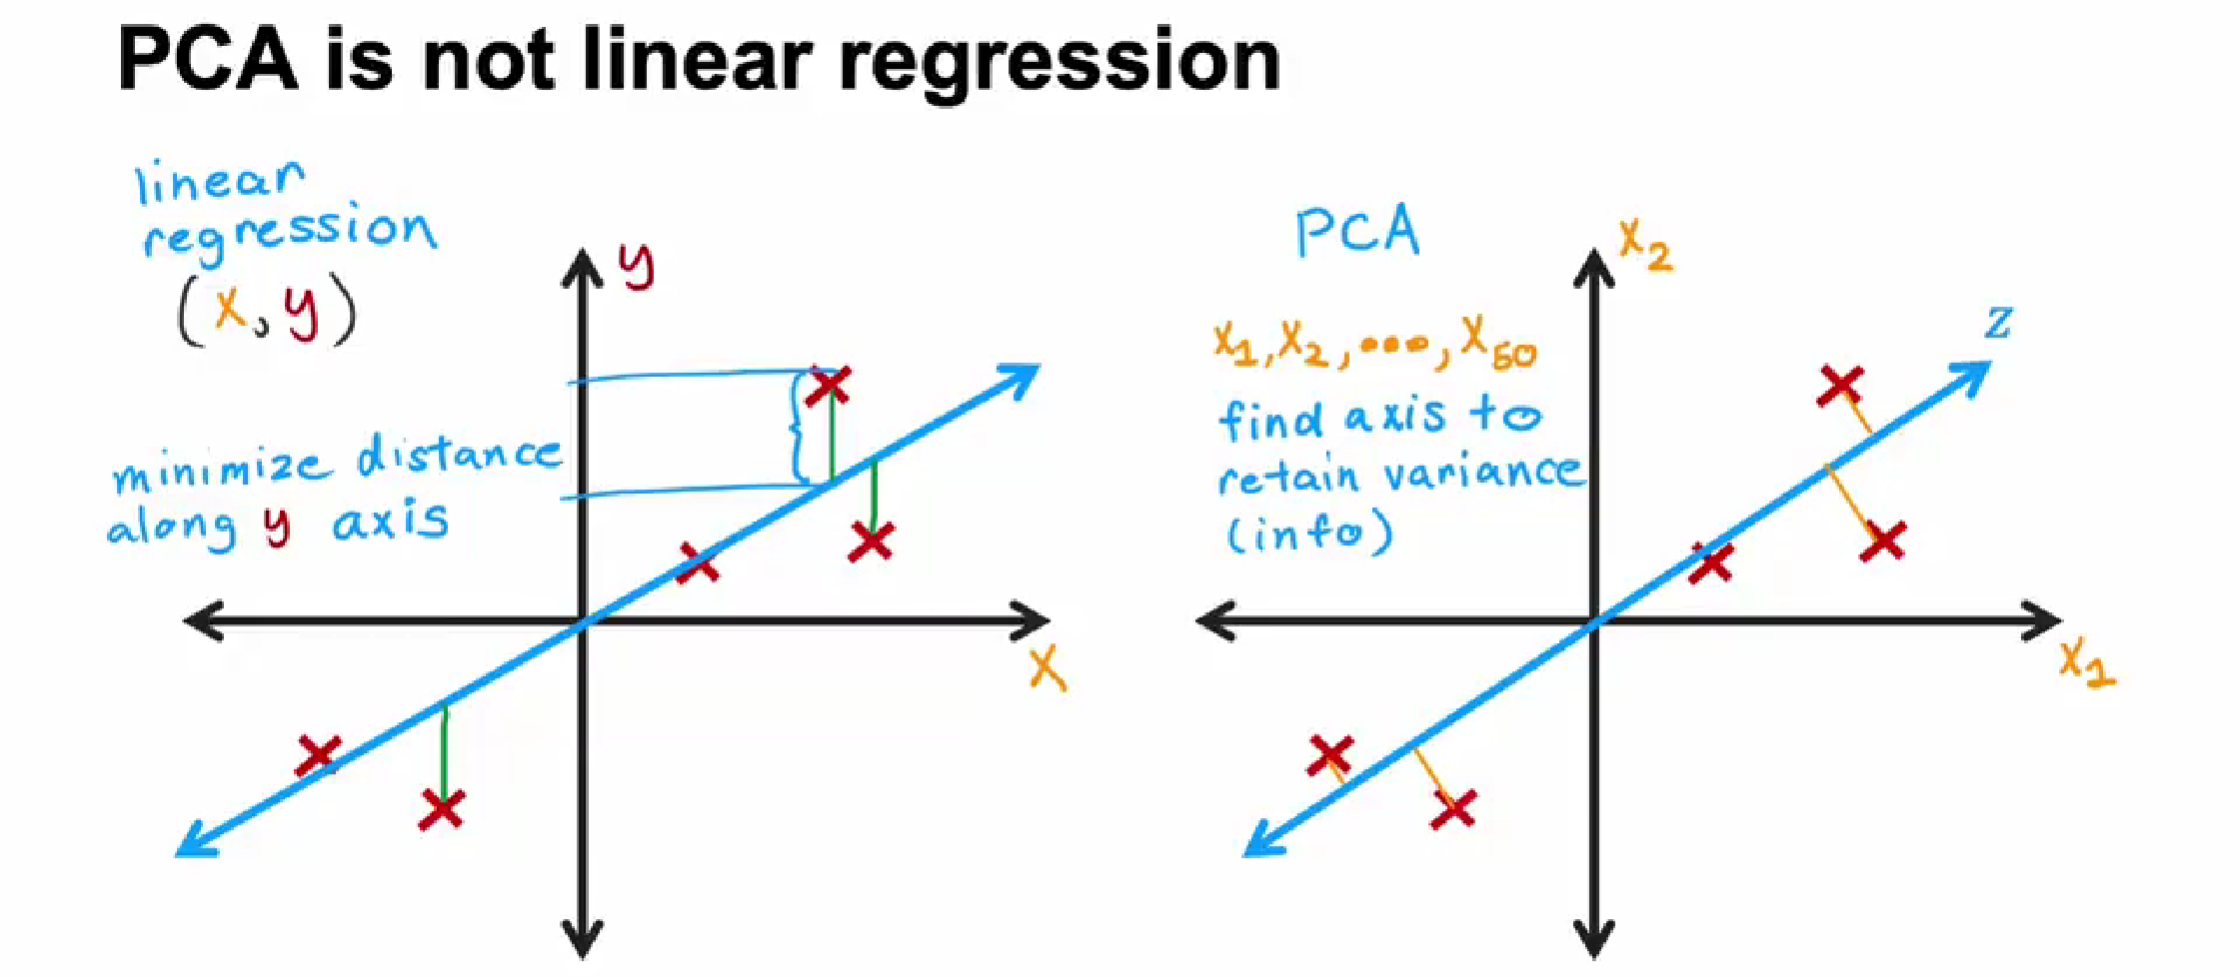 PCA is not linear regression
linear
regression
(x, y)
y
minimize distance
along y axis
x
PCA
x₂
x₁, x₂, ..., x₅₀
z
find axis to
retain variance
(info)
x₁